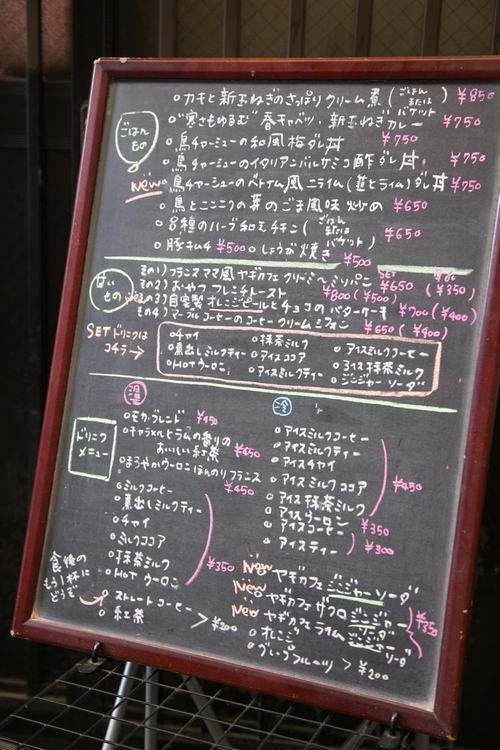 ごはんもの
○カキと新玉ねぎのさっぱりクリーム煮(ごはんまたはバケット) ¥850
○"寒さもゆるむ"春キャベツ、新玉ねぎカレー ¥750
○鳥チャーシューの和風梅ダレ丼 ¥750
○鳥チャーシューのイタリアンバルサミコ酢ダレ丼 ¥750
New○鳥チャーシューのベトナム風ニライム(塩とライム)ダレ丼 ¥750
○鳥とニンニクの芽のごま風味炒め ¥650
○8種のハーブ和えチキン(ごはんまたはバケット) ¥650
○豚キムチ ¥500 ○しょうが焼き ¥500
あまいもの
その1)フランスママ風ヤギカフェクリーミィ パン SET ¥650 (¥350)
その2)おやつフレンチトースト ¥800(¥500)
その3)自家製オレンジピールとチョコのバターケーキ ¥700(¥400)
その4)マーブルコーヒーのコーヒークリームシフォン ¥650(¥400)
SETドリンクはコチラ→
○チャイ ○抹茶ミルク ○アイスミルクコーヒー
○煮出しミルクティー ○アイスココア ○アイス抹茶ミルク
○Hotウーロン ○アイスミルクティー ○ジンジャーソーダ
ドリンクメニュー
温
○モカ・ブレンド ¥450
○キャラメルとラムの香りのおいしい紅茶 ¥450
○まろやかウーロンほんのりフランス ¥450
○ミルクコーヒー
○煮出しミルクティー
○チャイ
○ミルクココア
○抹茶ミルク
○Hotウーロン
¥350
食後のもう1杯にどうぞ
○ストレートコーヒー
○紅茶
>¥200
冷
○アイスミルクコーヒー
○アイスミルクティー
○アイスチャイ
○アイスミルクココア
○アイス抹茶ミルク
¥450
○アイスウーロン
○アイスコーヒー ¥350
○アイスティー ¥300
New○ヤギカフェジンジャーソーダ
New○ヤギカフェザクロジンジャー
New○ヤギカフェライムジンジャーソーダ
¥350
○オレンジ
○グレープフルーツ > ¥200